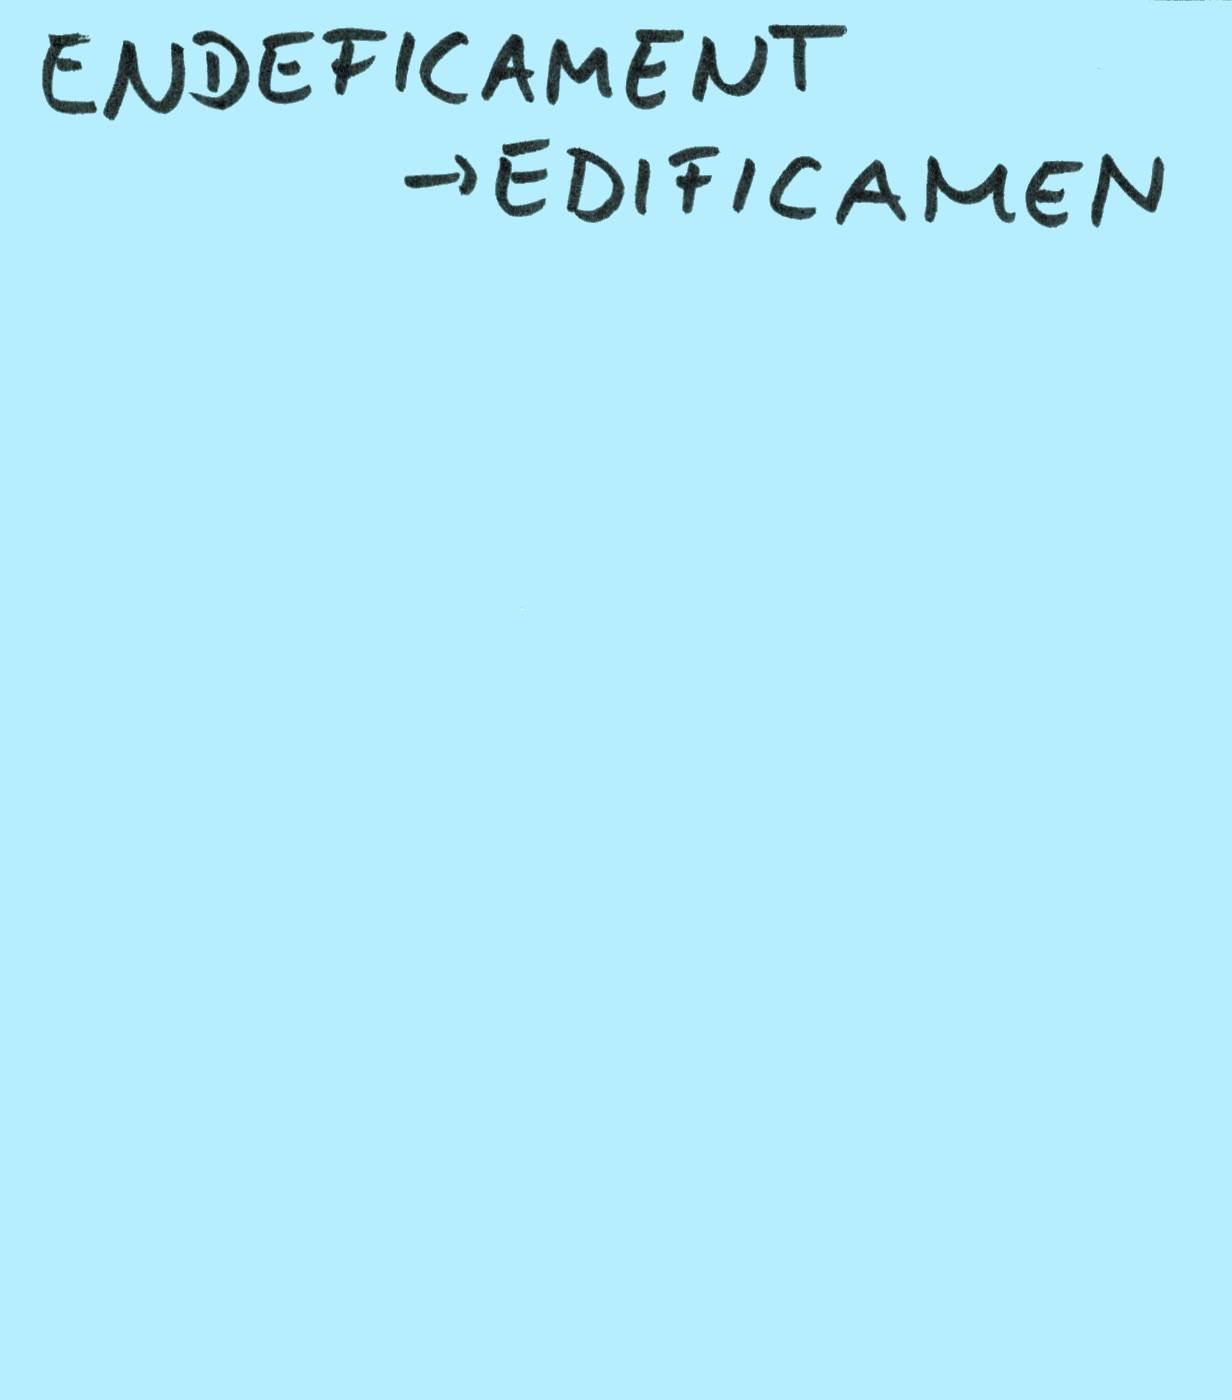 ENDEFICAMENT
→EDIFICAMEN